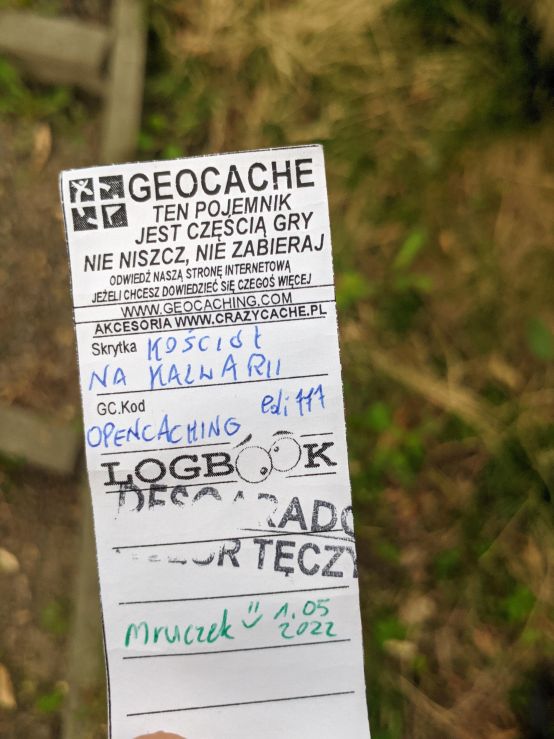 GEOCACHE
TEN POJEMNIK
JEST CZĘŚCIĄ GRY
NIE NISZCZ, NIE ZABIERAJ
ODWIEDŹ NASZĄ STRONĘ INTERNETOWĄ
JEŻELI CHCESZ DOWIEDZIEĆ SIĘ CZEGOŚ WIĘCEJ
WWW.GEOCACHING.COM
AKCESORIA WWW.CRAZYCACHE.PL
Skrytka KOŚCIÓŁ
NA KALWARII
GC.Kod edi777
OPENCACHING
LOGBOOK
TĘCZY
Mruczek 1.05
2022